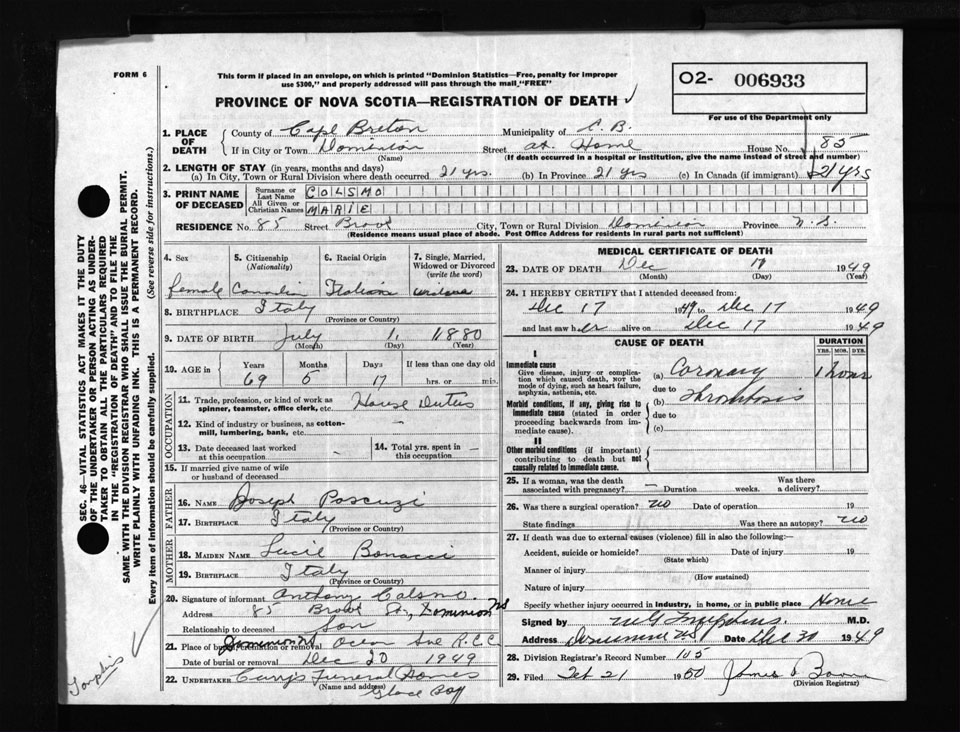 FORM 6
This form if placed in an envelope, on which is printed "Dominion Statistics—Free, penalty for improper
use $300," and properly addressed will pass through the mail "FREE"
O2- 006933
PROVINCE OF NOVA SCOTIA—REGISTRATION OF DEATH
For use of the Department only
1. PLACE OF DEATH County of Cape Breton Municipality of C. B.
If in City or Town Dominion Street at Home House No. 85
(Name) (If death occurred in a hospital or institution, give the name instead of street and number)
2. LENGTH OF STAY (in years, months and days)
(a) In City, Town or Rural Division where death occurred 21 yrs. (b) In Province 21 yrs (c) In Canada (if immigrant) 21 yrs
3. PRINT NAME OF DECEASED Surname or Last Name COLSMO
All Given or Christian Names MARIE
RESIDENCE No. 85 Street Brook City, Town or Rural Division Dominion Province N.S.
(Residence means usual place of abode. Post Office Address for residents in rural parts not sufficient)
4. Sex 5. Citizenship (Nationality) 6. Racial Origin 7. Single, Married, Widowed or Divorced (write the word)
female Italian
8. BIRTHPLACE Italy
(Province or Country)
9. DATE OF BIRTH July 1, 1880
(Month) (Day) (Year)
10. AGE in Years Months Days If less than one day old
69 5 17 hrs. or min.
11. Trade, profession, or kind of work as spinner, teamster, office clerk, etc. House Duties
12. Kind of industry or business, as cotton-mill, lumbering, bank, etc. —
13. Date deceased last worked at this occupation - 14. Total yrs. spent in this occupation —
15. If married give name of wife or husband of deceased
OCCUPATION
FATHER
16. NAME Joseph Pascuzi
17. BIRTHPLACE Italy
(Province or Country)
MOTHER
18. MAIDEN NAME Lucie Bonacci
19. BIRTHPLACE Italy
(Province or Country)
20. Signature of informant Anthony Calsmo.
Address 85 Brook St, Dominion NS
Relationship to deceased Son
21. Place of burial, cremation or removal Ocean Ave R.C.C.
Date of burial or removal Dec 20 1949
22. UNDERTAKER Curry's Funeral Homes
(Name and address) Glace Bay
MEDICAL CERTIFICATE OF DEATH
23. DATE OF DEATH Dec 17 1949
(Month) (Day) (Year)
24. I HEREBY CERTIFY that I attended deceased from:
Dec 17 1949 to Dec 17 1949
and last saw her alive on Dec 17 1949
CAUSE OF DEATH DURATION
YRS. MOS. DYS.
I
Immediate cause
Give disease, injury or complication which caused death, NOT the mode of dying, such as heart failure, asphyxia, asthenia, etc.
(a) Coronary 1 hour
due to
Morbid conditions, if any, giving rise to immediate cause (stated in order proceeding backwards from immediate cause).
(b) Thrombosis
due to
(c)
II
Other morbid conditions (if important) contributing to death but not causally related to immediate cause.
25. If a woman, was the death associated with pregnancy? — Duration weeks. Was there a delivery?
26. Was there a surgical operation? no Date of operation 19
State findings Was there an autopsy? no
27. If death was due to external causes (violence) fill in also the following:—
Accident, suicide or homicide? Date of injury 19
(State which)
Manner of injury
(How sustained)
Nature of injury
Specify whether injury occurred in industry, in home, or in public place Home
Signed by M.D.
Address Dominion NS Date Dec 20 1949
28. Division Registrar's Record Number 105
29. Filed Feb 21 1950 James
(Division Registrar)
SEC. 46—VITAL STATISTICS ACT MAKES IT THE DUTY
OF THE UNDERTAKER OR PERSON ACTING AS UNDER-
TAKER TO OBTAIN ALL THE PARTICULARS REQUIRED
IN THE "REGISTRATION OF DEATH" AND TO FILE THE
SAME WITH THE DIVISION REGISTRAR WHO SHALL ISSUE THE BURIAL PERMIT.
WRITE PLAINLY WITH UNFADING INK. THIS IS A PERMANENT RECORD.
Every item of information should be carefully supplied. (See reverse side for instructions.)